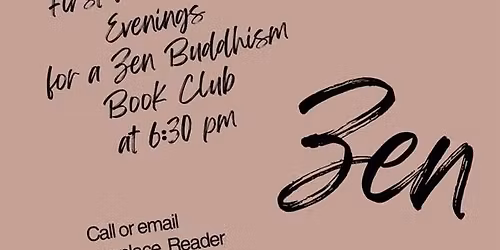 First
Evenings
for a Zen Buddhism
Book Club
at 6:30 pm
Zen
Call or email
Reader